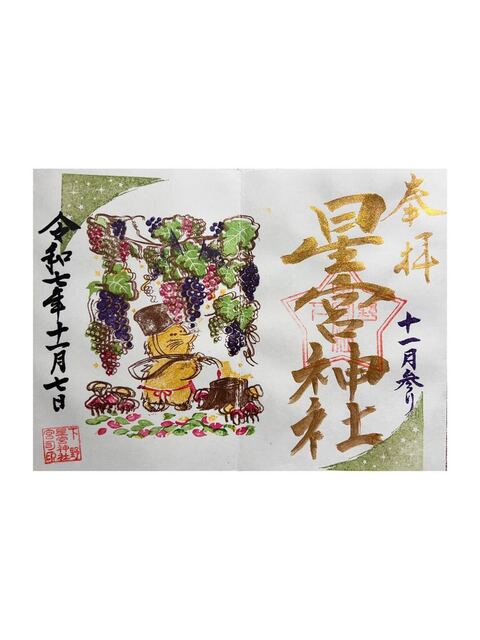 奉拝
星宮神社
十一月参り
令和七年十一月七日
下野
星宮神社
宮司印